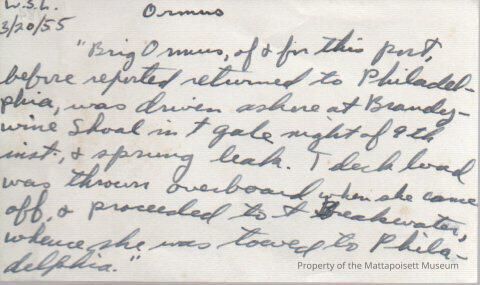 W.S.L.
3/20/55
Ormus
"Brig Ormus, of & for this port,
before reported returned to Philadel-
phia, was driven ashore at Brandy-
wine Shoal in t gale night of 9th
inst., & sprung leak. T deck load
was thrown overboard when she came
off, & proceeded to t Breakwater,
whence she was towed to Phila-
delphia."
Property of the Mattapoisett Museum